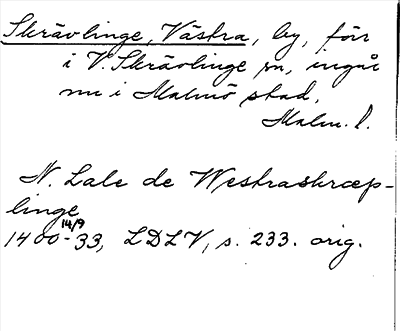 Skrävlinge, Västra, by, förr
i V. Skrävlinge sn, ingår
nu i Malmö stad.
Malm. l.
N. Lale de Westraskræp-
linge
14/9
1400-33, LDLV, s. 233. orig.